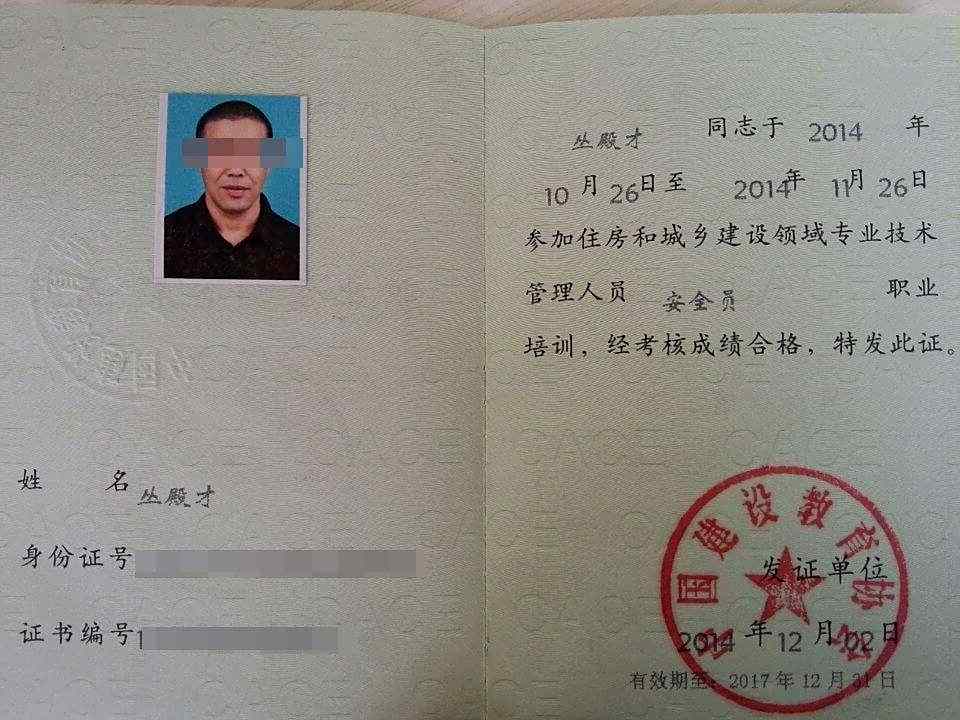 姓 名 丛殿才
身份证号
证书编号1
丛殿才 同志于 2014 年
10月26日至 2014年 11月26日
参加住房和城乡建设领域专业技术
管理人员 安全员 职业
培训，经考核成绩合格，特发此证。
中国建设教育协会
发证单位
2014年12月02日
有效期至：2017年12月31日